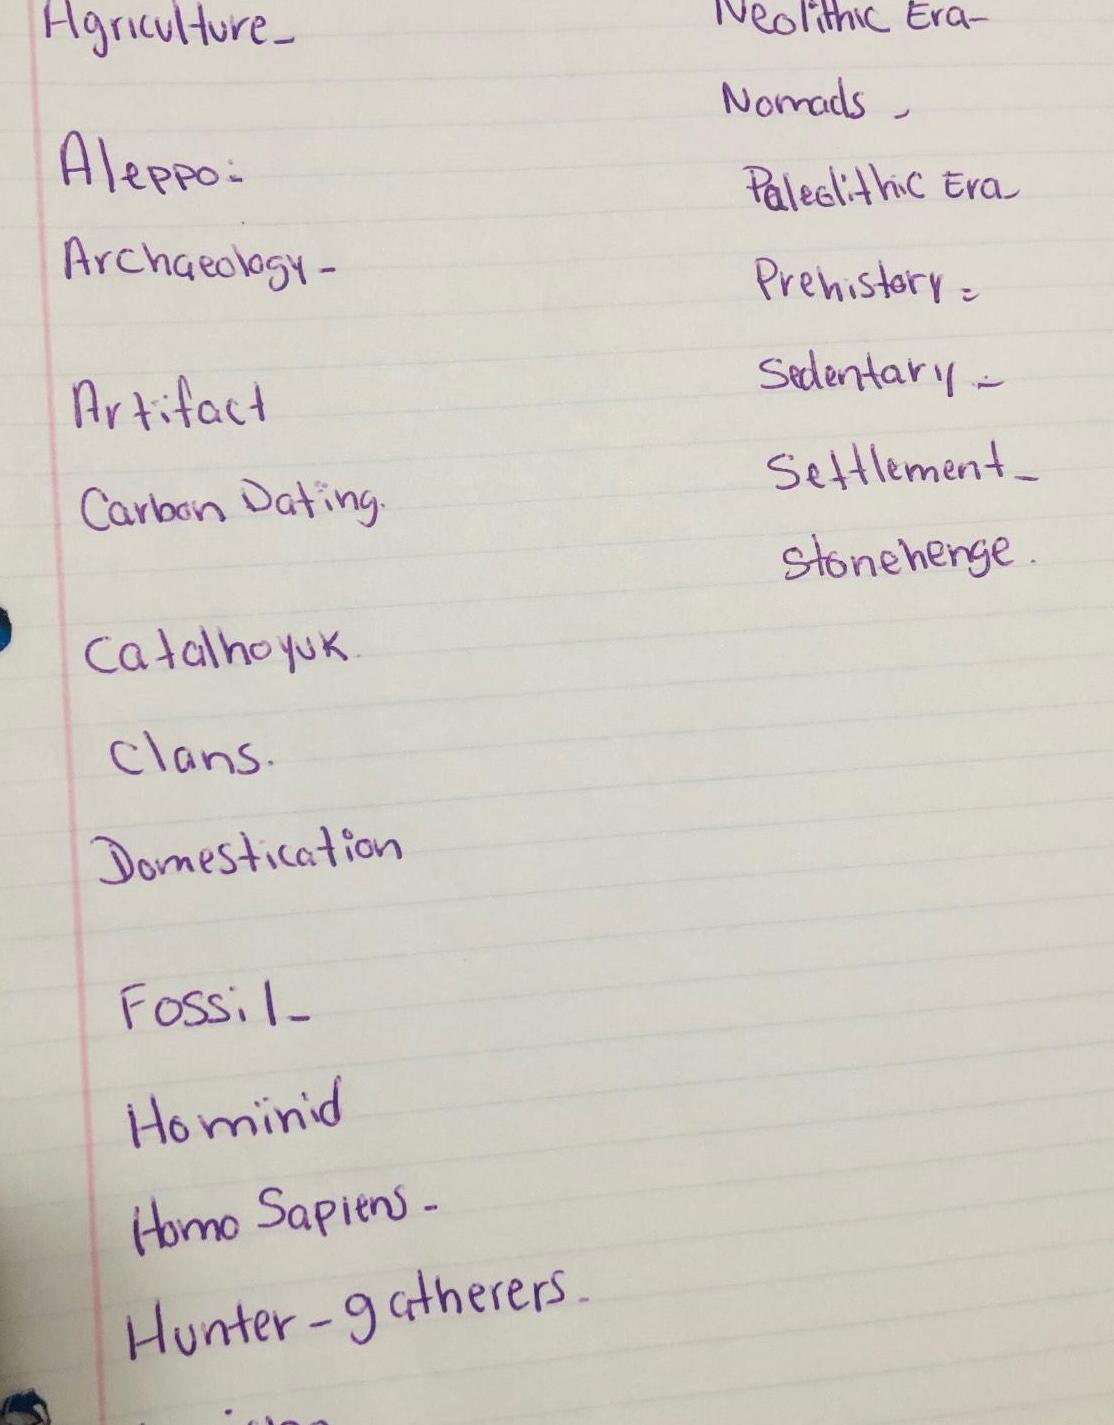 Agriculture-
Aleppo:
Archaeology-
Artifact
Carbon Dating.
Catalhoyuk.
Clans.
Domestication
Fossil-
Hominid
Homo Sapiens-
Hunter-gatherers.
Neolithic Era-
Nomads -
Paleolithic Era-
Prehistory =
Sedentary -
Settlement-
Stonehenge.